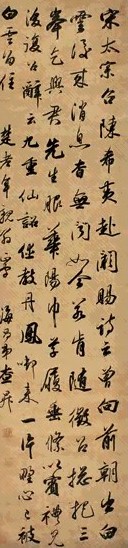 宋太宗召陳希夷赴闕賜詩云曾向前朝出白
雲後來消息杳無聞如今若肯隨徵召總把三
峯乞與君先生服華陽巾草屨垂絛以賓禮見
後復召辭云九重仙詔休教丹鳳啣來一片野心已被
白雲留住 楚老年親翁 弟查昇